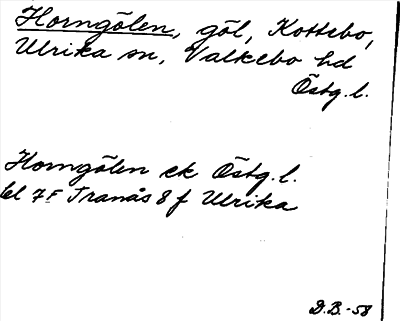 Horngölen, göl, Kottebo,
Ulrika sn, Valkebo hd
Östg. l.
Horngölen ek Östg. l.
bl 7F Tranås 8 f Ulrika
D.B.-58